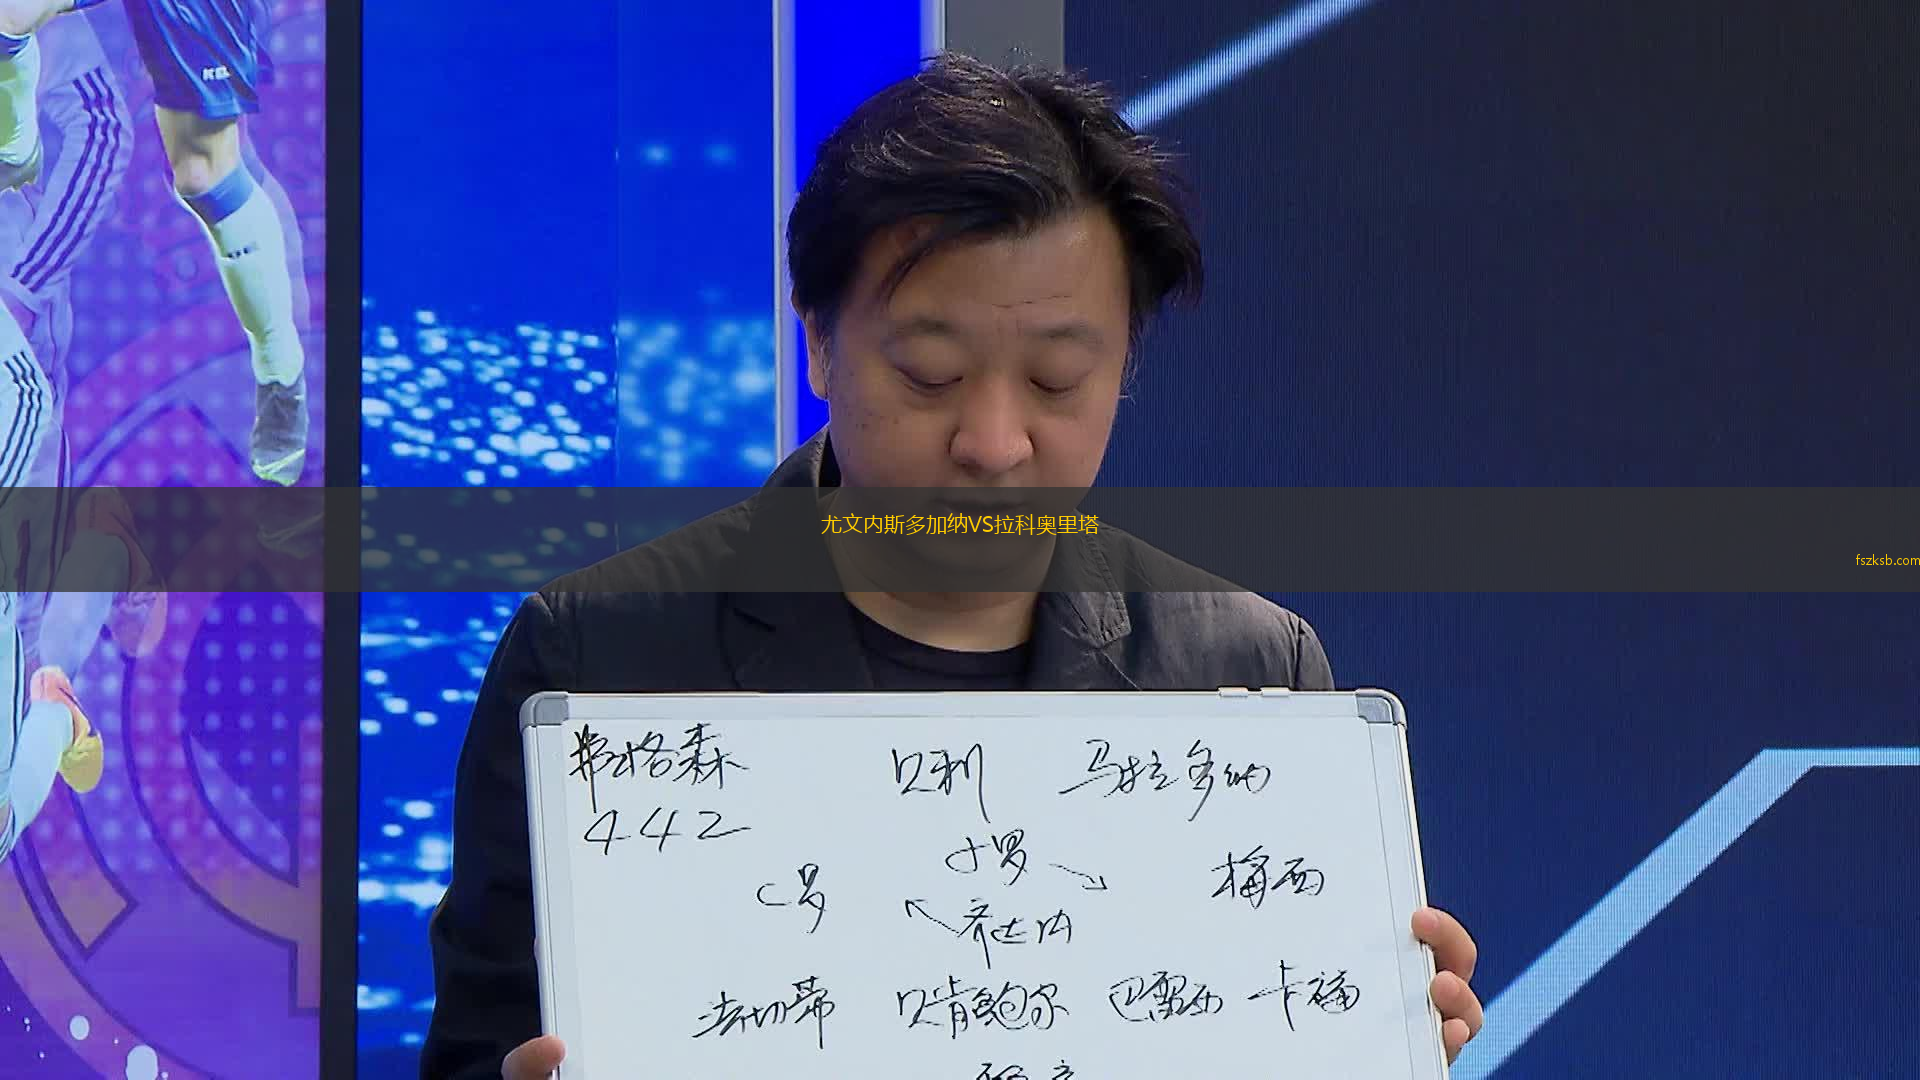 KEL
尤文内斯多加纳VS拉科奥里塔
fszksb.com
弗格森 贝利 马拉多纳
442
C罗 小罗 梅西
齐达内
法切蒂 贝肯鲍尔 巴雷西 卡福